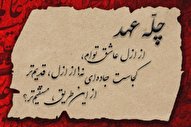 چلّه عهد
از ازل عاشق توام،
کجاست جاده‌ای نه از ازل، قدیم‌تر
از این طریق مستقیم‌تر؟